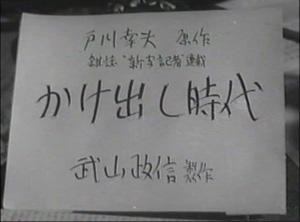 戸川幸夫 原作
雑誌“新聞記者”連載
かけ出し時代
武山政信 製作